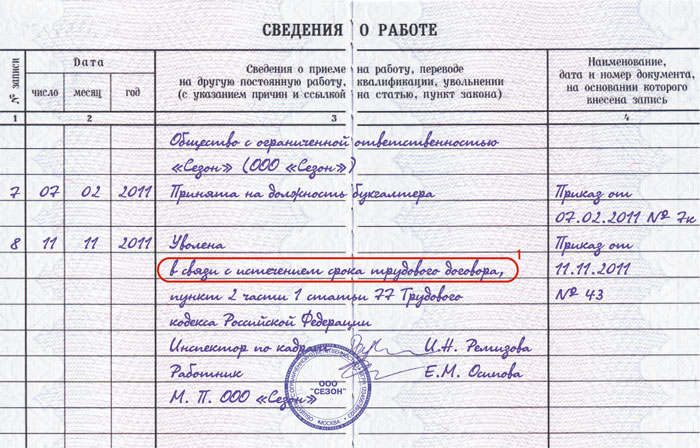 СВЕДЕНИЯ О РАБОТЕ
№ записи
Дата
Сведения о приеме на работу, переводе
на другую постоянную работу, квалификации, увольнении
(с указанием причин и ссылкой на статью, пункт закона)
Наименование,
дата и номер документа,
на основании которого
внесена запись
число месяц год
1 2 3 4
Общество с ограниченной ответственностью
«Сезон» (ООО «Сезон»)
7 07 02 2011 Принята на должность бухгалтера Приказ от
07.02.2011 № 7к
8 11 11 2011 Уволена Приказ от
1
в связи с истечением срока трудового договора, 11.11.2011
пункт 2 части 1 статьи 77 Трудового № 43
кодекса Российской Федерации
Инспектор по кадрам И.Н. Ремизова
Работник Е.М. Осипова
М. П. ООО «Сезон»
ООО
"СЕЗОН"
МОСКВА